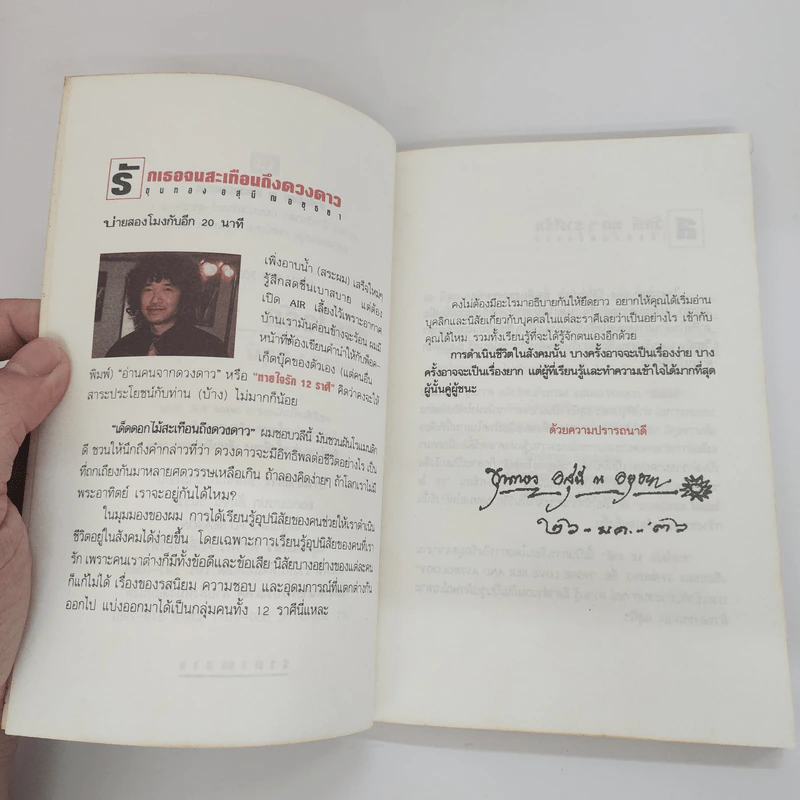 รักเธอจนสะเทือนถึงดวงดาว
ขุนทอง อสุนี ณ อยุธยา
บ่ายสองโมงกับอีก 20 นาที
เพิ่งอาบน้ำ (สระผม) เสร็จใหม่ๆ
รู้สึกสดชื่นเบาสบาย แต่ต้อง
เปิด AIR เลี้ยงไว้เพราะอากาศ
บ้านเรามันค่อนข้างจะร้อน ผมมี
หน้าที่ต้องเขียนคำนำให้กับพ็อค-
เก็ตบุ๊คของตัวเอง (แต่คนอื่น
พิมพ์) "อ่านคนจากดวงดาว" หรือ "ทายใจรัก 12 ราศี" คิดว่าคงจะให้
สาระประโยชน์กับท่าน (บ้าง) ไม่มากก็น้อย
"เด็ดดอกไม้สะเทือนถึงดวงดาว" ผมชอบวลีนี้ มันชวนฝันโรแมนติก
ดี ชวนให้นึกถึงคำกล่าวที่ว่า ดวงดาวจะมีอิทธิพลต่อชีวิตอย่างไร เป็น
ที่ถกเถียงกันมาหลายศตวรรษเหลือเกิน ถ้าลองคิดง่ายๆ ถ้าโลกเราไม่มี
พระอาทิตย์ เราจะอยู่กันได้ไหม?
ในมุมมองของผม การได้เรียนรู้อุปนิสัยของคนช่วยให้เราดำเนิน
ชีวิตอยู่ในสังคมได้ง่ายขึ้น โดยเฉพาะการเรียนรู้อุปนิสัยของคนที่เรา
รัก เพราะคนเราต่างก็มีทั้งข้อดีและข้อเสีย นิสัยบางอย่างของแต่ละคน
ก็แก้ไม่ได้ เรื่องของรสนิยม ความชอบ และอุดมการณ์ที่แตกต่างกัน
ออกไป แบ่งออกมาได้เป็นกลุ่มคนทั้ง 12 ราศีนี่แหละ
คงไม่ต้องมีอะไรมาอธิบายกันให้ยืดยาว อยากให้คุณได้เริ่มอ่าน
บุคลิกและนิสัยเกี่ยวกับบุคคลในแต่ละราศีเลยว่าเป็นอย่างไร เข้ากับ
คุณได้ไหม รวมทั้งเรียนรู้ที่จะได้รู้จักตนเองอีกด้วย
การดำเนินชีวิตในสังคมนั้น บางครั้งอาจจะเป็นเรื่องง่าย บาง
ครั้งอาจจะเป็นเรื่องยาก แต่ผู้ที่เรียนรู้และทำความเข้าใจได้มากที่สุด
ผู้นั้นคู่ผู้ชนะ
ด้วยความปรารถนาดี
อสุนี ณ อยุธยา